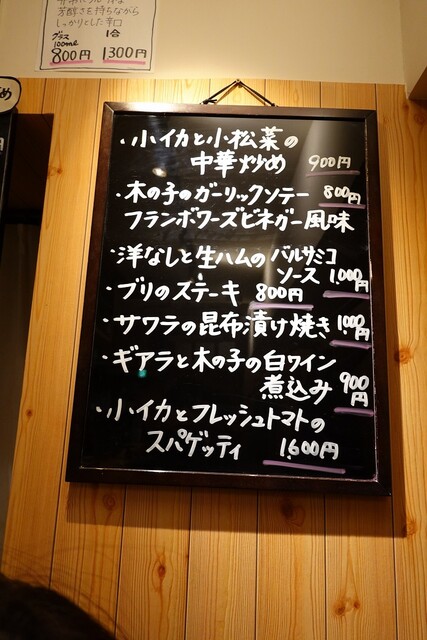 芳醇さを持ちながら
しっかりとした辛口
グラス 1合
100ml
800円 1300円
め
・小イカと小松菜の
中華炒め 900円
・木の子のガーリックソテー 800円
フランボワーズビネガー風味
・洋なしと生ハムのバルサミコ
ソース 1,000円
・ブリのステーキ 800円
・サワラの昆布漬け焼き 1000円
・ギアラと木の子の白ワイン
煮込み 900円
・小イカとフレッシュトマトの
スパゲッティ 1,600円